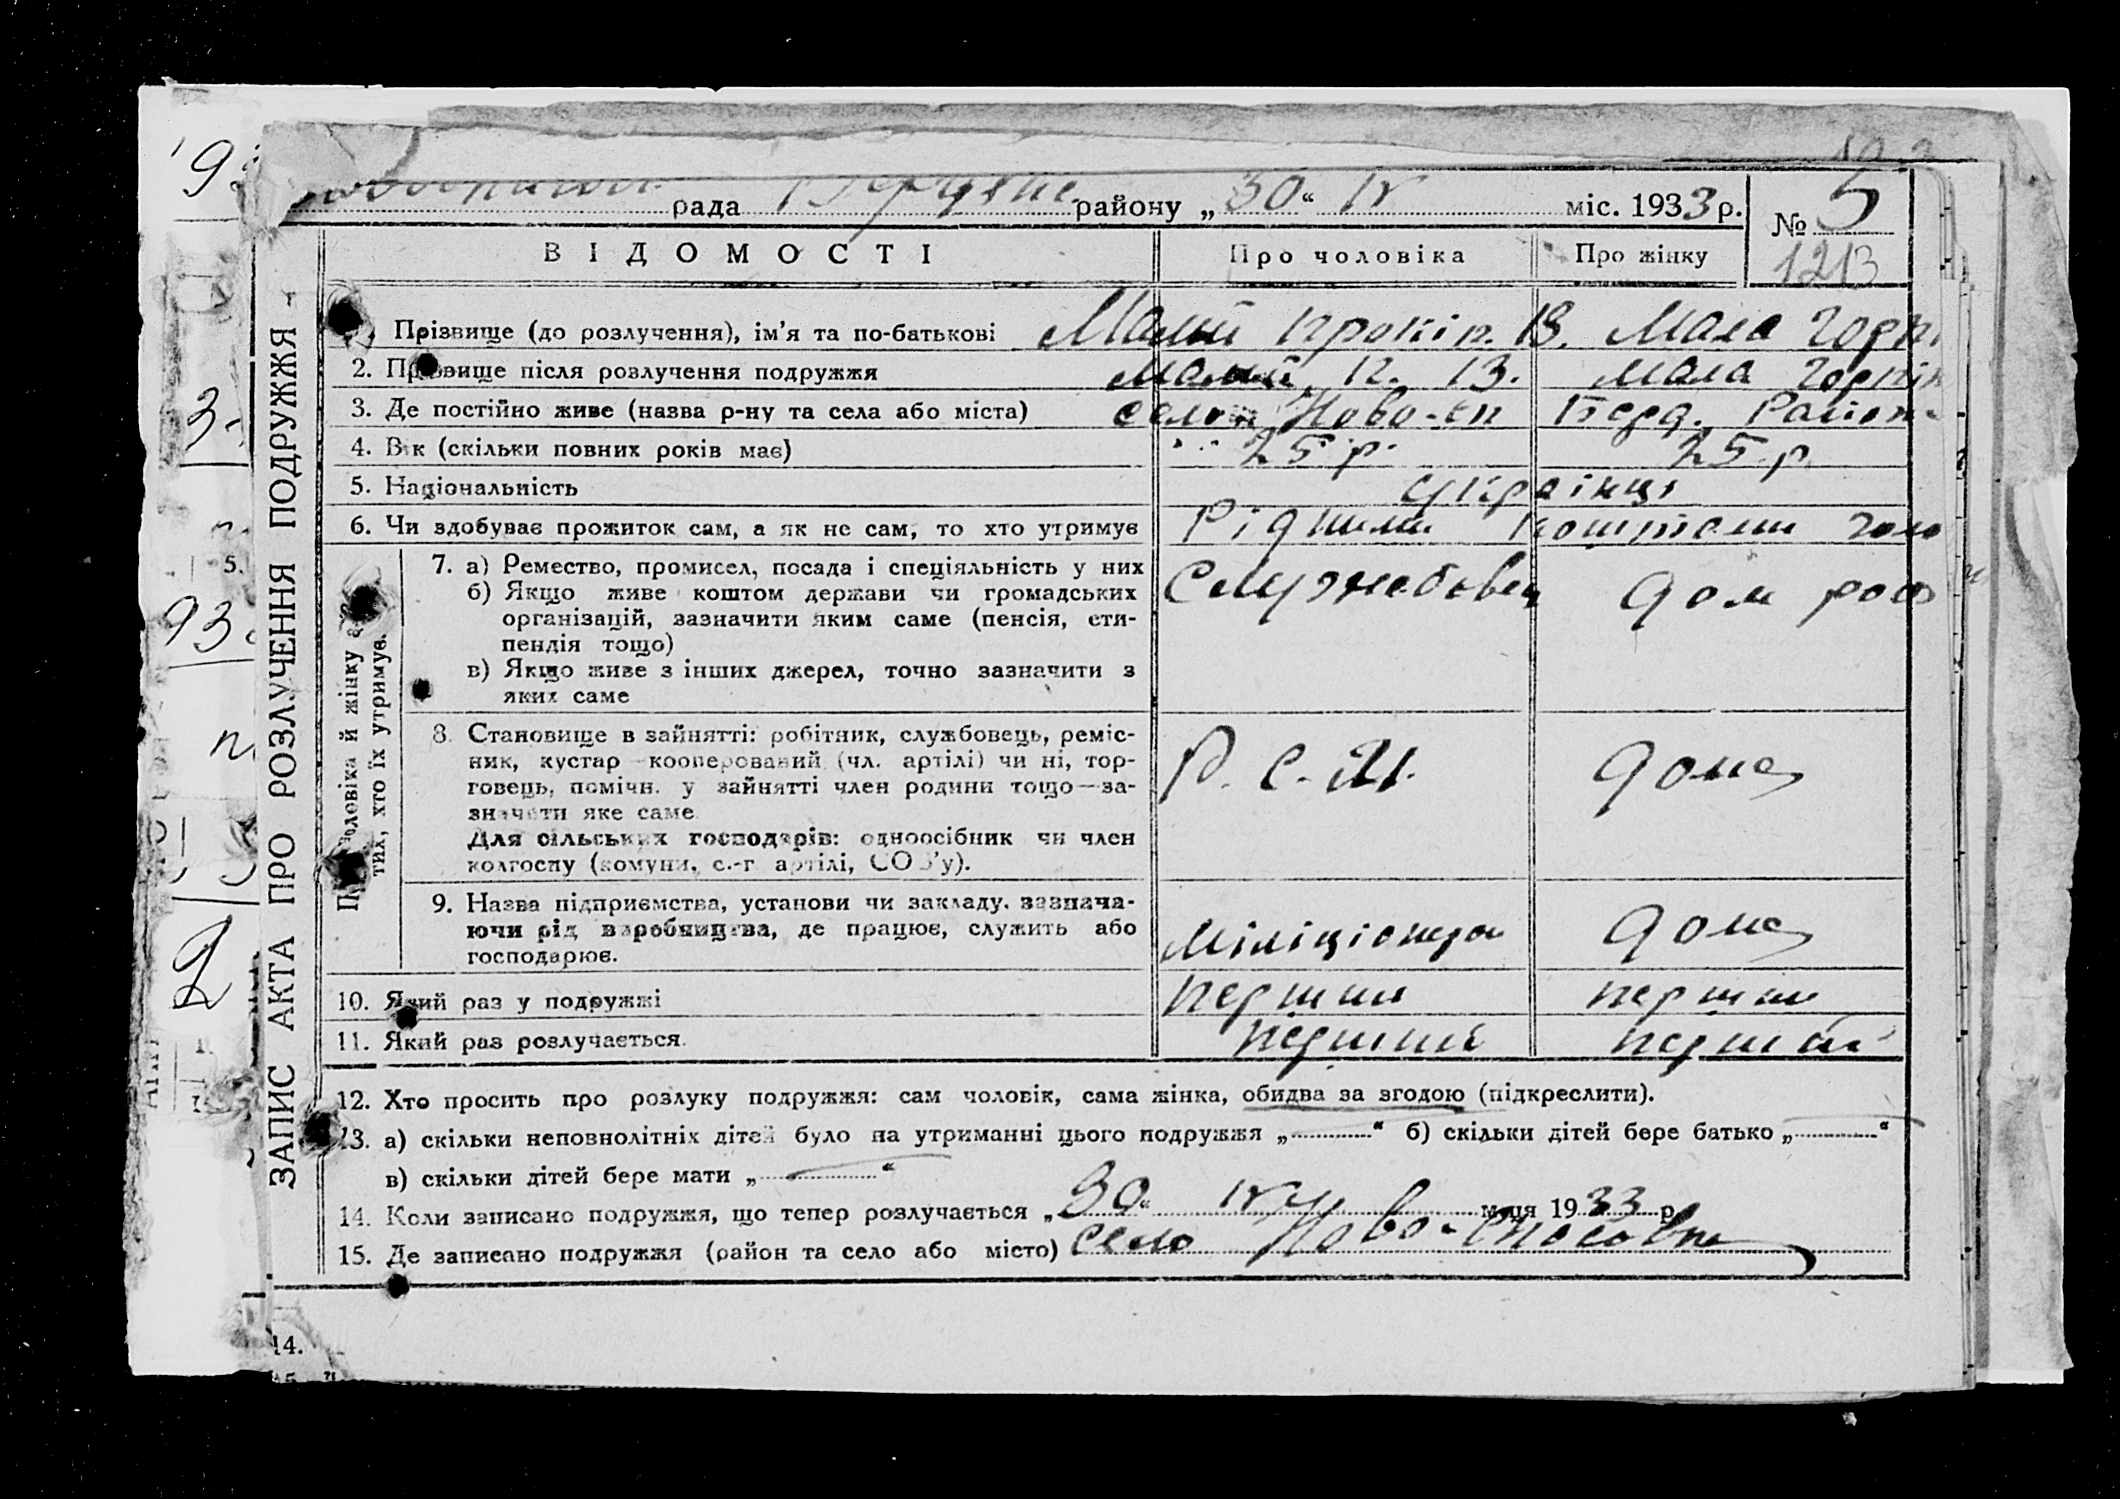 рада район у „ 30 “ IV міс. 1933 р. № 5
1213
ВІДОМОСТІ Про чоловіка Про жінку
Прізвище (до розлучення), ім’я та по-батькові Малий Прокіп. В. Мала Горп
2. Прізвище після розлучення подружжя Малий П. В. Мала Горпін
3. Де постійно живе (назва р-ну та села або міста) село Ново-сп Берд. Район
4. Вік (скільки повних років має) 25 р. 25 р
5. Національність українці
6. Чи здобуває прожиток сам, а як не сам, то хто утримує Рідними коштами
ЗАПИС АКТА ПРО РОЗЛУЧЕННЯ ПОДРУЖЖЯ
чоловіка й жінку
тих, хто їх утримує.
7. а) Ремество, промисел, посада і спеціяльність у них Службовец дом роб
б) Якщо живе коштом держави чи громадських
організацій, зазначити яким саме (пенсія, сти-
пендія тощо)
в) Якщо живе з інших джерел, точно зазначити з
яких саме
8. Становище в зайнятті: робітник, службовець, реміс-
ник, кустар кооперований (чл. артілі) чи ні, тор-
говець, помічн. у зайнятті член родини тощо—за-
значити яке саме
Р. С. М. дома
Для сільських господарів: одноосібник чи член
колгоспу (комуни, с.-г артілі, СОЗ’у).
9. Назва підприємства, установи чи закладу, зазнача-
ючи рід виробництва, де працює, служить або
господарює.
Міліціонер дома
10. Який раз у подружжі перший перший
11. Який раз розлучається перший перший
12. Хто просить про розлуку подружжя: сам чоловік, сама жінка, обидва за згодою (підкреслити).
13. а) скільки неповнолітніх дітей було на утриманні цього подружжя „ — “ б) скільки дітей бере батько „ — “
в) скільки дітей бере мати „ — “
14. Коли записано подружжя, що тепер розлучається „ 30 “ м-ця 1933 р
15. Де записано подружжя (район та село або місто) село Ново-Спасовка
14.